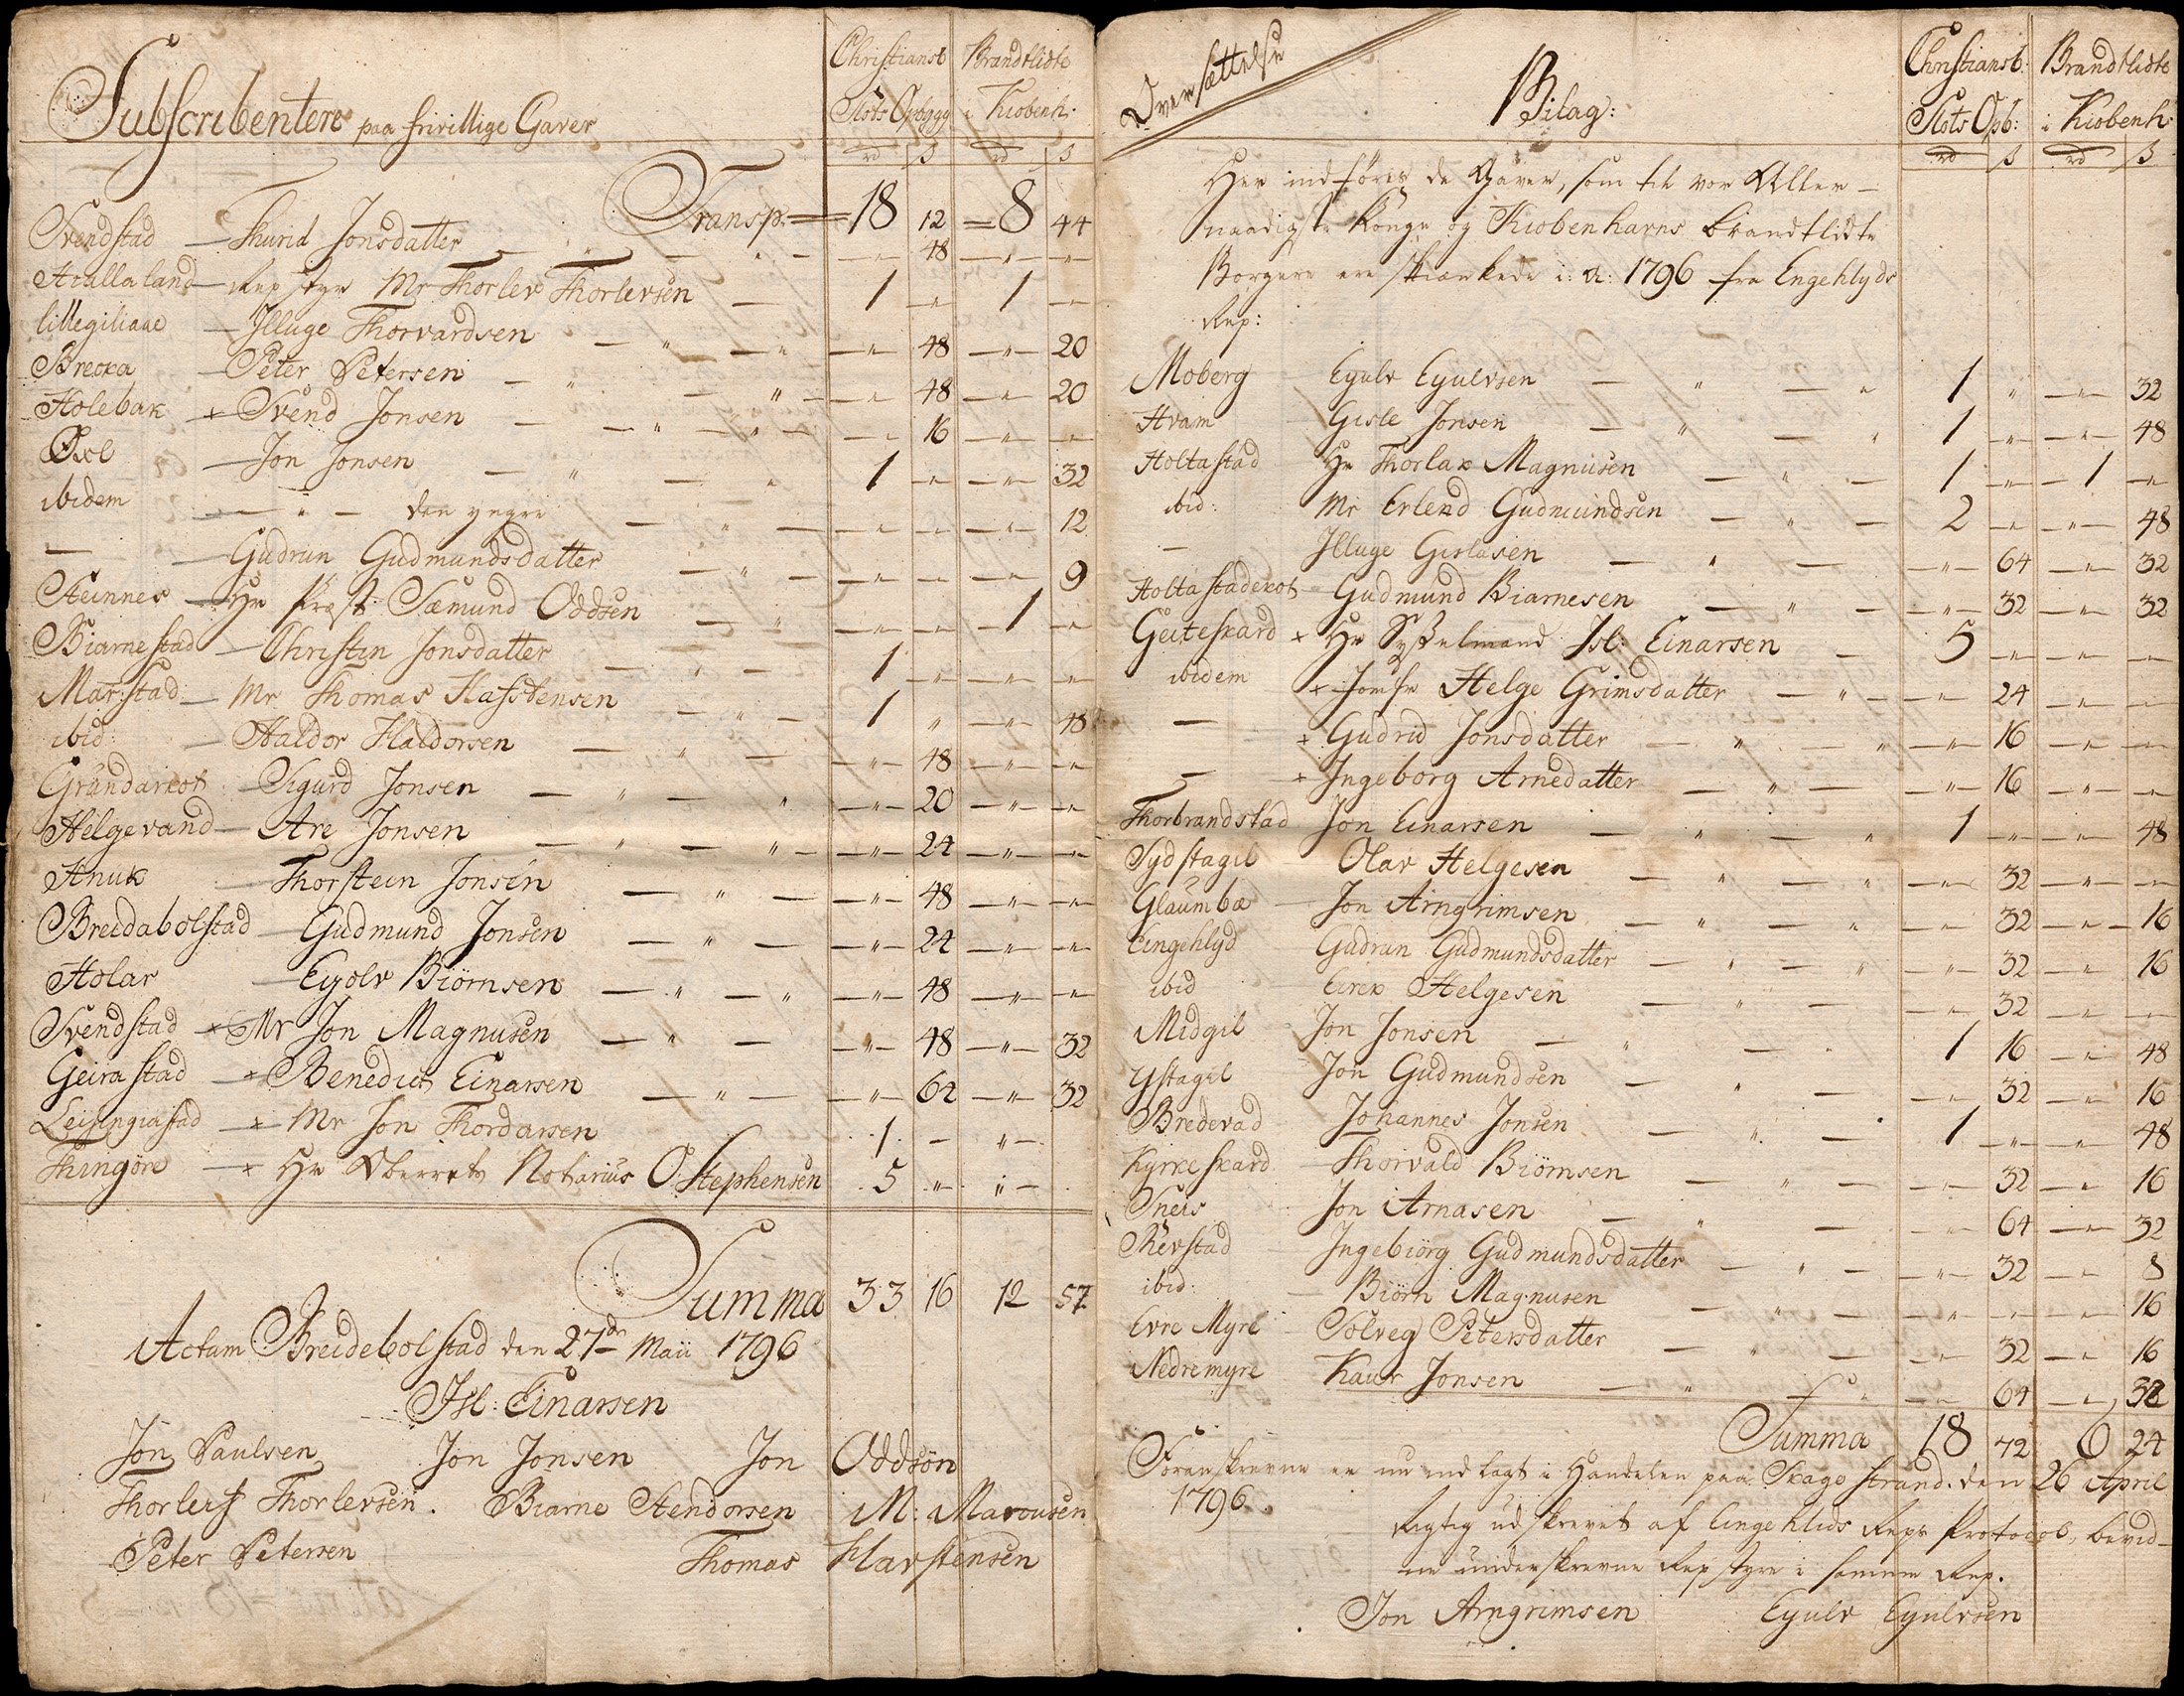 Christiansb Brandtlidte
Subscribentere paa frivillige Gaver Slots Opbygg i Kiøbenh:
rd ß rd ß
Transp: 18 12 8 44
Svendstad — Thurid Jonsdatter — " — 48 — " —
Hiallaland — Repstyr Mr Thorlev Thorlevsen — 1 — 1 —
Lillegiliaae — Illuge Thorvardsen — " — 48 — " — 20
Brecka — Peter Petersen — " — 48 — " — 20
Holebak × Svend Jonsen — " — 16 — " —
Øxl — Jon Jonsen — " — 1 — " — 32
ibidem — " — den yngre — " — 12
— — Gudrun Gudmundsdatter — " — 9
Steinnes — Hr Præst Sæmund Oddsen — " — 1 —
Biarnestad — Christin Jonsdatter — " — 1 — " —
Marstad — Mr Thomas Hafstensen — " — 1 " — " — 48
ibid: — Haldor Haldorsen — " — 48 — " —
Grundarkot — Sigurd Jonsen — " — 20 — " —
Helgevand — Are Jonsen — " — 24 — " —
Hnuk — Thorstein Jonsen — " — 48 — " —
Breidabolstad — Gudmund Jonsen — " — 24 — " —
Holar — Eyolv Biörnsen — " — 48 — " —
Svendstad × Mr Jon Magnusen — " — 48 — " — 32
Geirastad × Benedict Einarsen — " — 64 — " — 32
Leisingiastad × Mr Jon Thordarsen 1 — " —
Thingöre × Hr Oberrets Notarius O Stephensen 5 " " —
Summa 33 16 12 57
Actum Breidebolstad den 27de Maii 1796
Isl: Einarsen
Jon Paulsen Jon Jonsen Jon Oddsön
Thorleif Thorlevsen. Biarne Stendorsen M: Marcusen
Peter Petersen Thomas Havstensen
Oversættelse Christiansb: Brandtlidte
Bilag: Slots Opb: i Kiobenh:
rd ß rd ß
Her indføres de Gaver, som til vor Aller-
naadigste Konge og Kiobenhavns brandtlidte
Borgere ere skiænkede i: a: 1796 fra Engehlyds
Rep:
Moberg Eyulv Eyulvsen — " — 1 " — " — 32
Hvam Gisle Jonsen — " — 1 — " — 48
Holtastad Hr Thorlak Magnusen — " — 1 — 1 —
ibid: Mr Erlend Gudmundsen — " — 2 — " — 48
— Illuge Gislasen — " — 64 — " — 32
Holtastadekot Gudmund Biarnesen — " — 32 — " — 32
Geiteskard × Hr Sysselmand Isl: Einarsen — 5 — " —
ibidem × Jomfr Helge Grimsdatter — " — 24 — " —
— × Gudrid Jonsdatter — " — 16 — " —
— × Ingeborg Arnedatter — " — 16 — " —
Thorbrandstad Jon Einarsen — " — 1 — " — 48
Sydstagil Olav Helgesen — " — 32 — " —
Glaumbæ Jon Arngrimsen — " — 32 — " — 16
Eingehlyd Gudrun Gudmundsdatter — " — 32 — " 16
ibid Eirek Helgesen — " — 32 — " —
Midgil Jon Jonsen — " — 1 16 — " 48
Ystagil Jon Gudmundsen — " — 32 — " 16
Bredevad Johannes Jonsen — " — 1 — " — 48
Kyrkeskard Thorvald Biörnsen — " — 32 — " 16
Sneis Jon Arnasen — " — 64 — " 32
Revstad Ingebiörg Gudmundsdatter — " — 32 — " 8
ibid: Biörn Magnusen — " — " — 16
Evre Myre Solveg Petersdatter — " — 32 — " 16
Nedremyre Kaur Jonsen — " — 64 — " 32
Summa 18 72 6 24
Foranskrevne er nu indlagt i Handelen paa Skage strand. den 26 April
1796.
Rigtig udskrevet af Eingehlids Reps Protocol, bevid-
ne underskrevne Repstyre i samme Rep.
Jon Arngrimsen Eyulv Eyulvsen